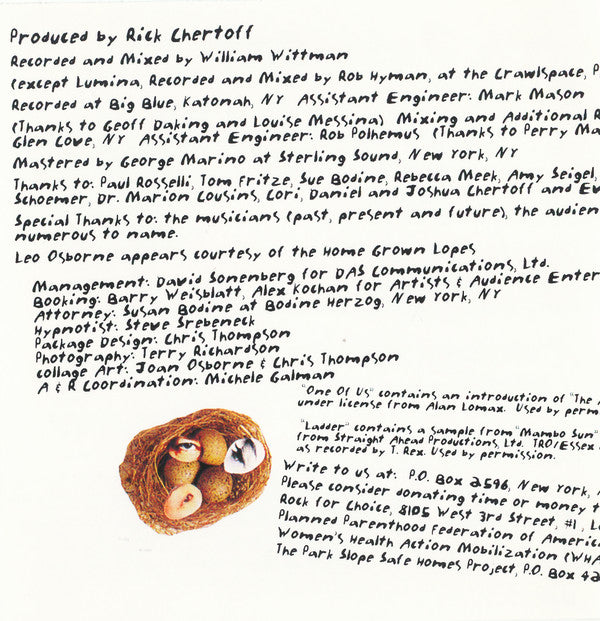 Produced by Rick Chertoff
Recorded and Mixed by William Wittman
(except Lumina, Recorded and Mixed by Rob Hyman, at the Crawlspace, P
Recorded at Big Blue, Katonah, NY Assistant Engineer: Mark Mason
(Thanks to Geoff Daking and Louise Messina) Mixing and Additional R
Glen Cove, NY Assistant Engineer: Rob Polhemus (Thanks to Perry Ma
Mastered by George Marino at Sterling Sound, New York, NY
Thanks to: Paul Rosselli, Tom Fritze, Sue Bodine, Rebecca Meek, Amy Seigel,
Schoemer, Dr. Marion Cousins, Lori, Daniel and Joshua Chertoff and Ev
Special Thanks to: the musicians (past, present and future), the audien
numerous to name.
Leo Osborne appears courtesy of the Home Grown Lopes
Management: David Sonenberg for DAS Communications, Ltd.
Booking: Barry Weisblatt, Alex Kochan for Artists & Audience Enter
Attorney: Susan Bodine at Bodine Herzog, New York, NY
Hypnotist: Steve Srebeneck
Package Design: Chris Thompson
Photography: Terry Richardson
Collage Art: Joan Osborne & Chris Thompson
A & R Coordination: Michele Galman
"One Of Us" contains an introduction of "The
under license from Alan Lomax. Used by perm
"Ladder" contains a sample from "Mambo Sun"
from Straight Ahead Productions, Ltd. TRO/Essex
as recorded by T. Rex. Used by permission.
Write to us at: P.O. Box 2596, New York,
Please consider donating time or money t
Rock for Choice, 8105 West 3rd Street, #1, L
Planned Parenthood Federation of Americ
Women's Health Action Mobilization (WHA
The Park Slope Safe Homes Project, P.O. Box 42